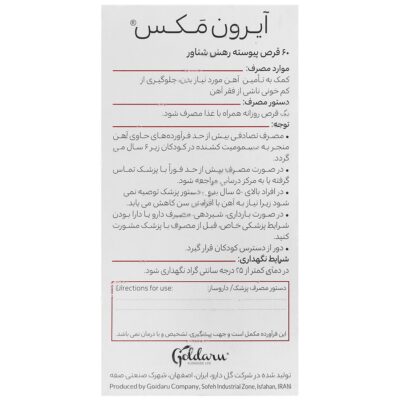 آیرون مَکس®
۶۰ قرص پیوسته رهش شناور
موارد مصرف:
کمک به تأمین آهن مورد نیاز بدن، جلوگیری از
کم خونی ناشی از فقر آهن
دستور مصرف:
یک قرص روزانه همراه با غذا مصرف شود.
توجه:
• مصرف تصادفی بیش از حد فرآورده‌های حاوی آهن
منجر به مسمومیت کشنده در کودکان زیر ۶ سال می
گردد.
• در صورت مصرف بیش از حد فوراً با پزشک تماس
گرفته یا به مرکز درمانی مراجعه شود.
• در افراد بالای ۵۰ سال بدون دستور پزشک توصیه نمی
شود زیرا نیاز به آهن با افزایش سن کاهش می یابد.
• در صورت بارداری، شیردهی، مصرف دارو یا دارا بودن
شرایط پزشکی خاص، قبل از مصرف با پزشک مشورت
کنید.
• دور از دسترس کودکان قرار گیرد.
شرایط نگهداری:
در دمای کمتر از ۲۵ درجه سانتی گراد نگهداری شود.
دستور مصرف پزشک/ داروساز: Directions for use:
این فرآورده مکمل است و جهت پیشگیری، تشخیص و یا درمان نمی باشد.
Goldaru
تولید شده در شرکت گل دارو، ایران، اصفهان، شهرک صنعتی صفه
Produced by Goldaru Company, Sofeh Industrial Zone, Isfahan, IRAN